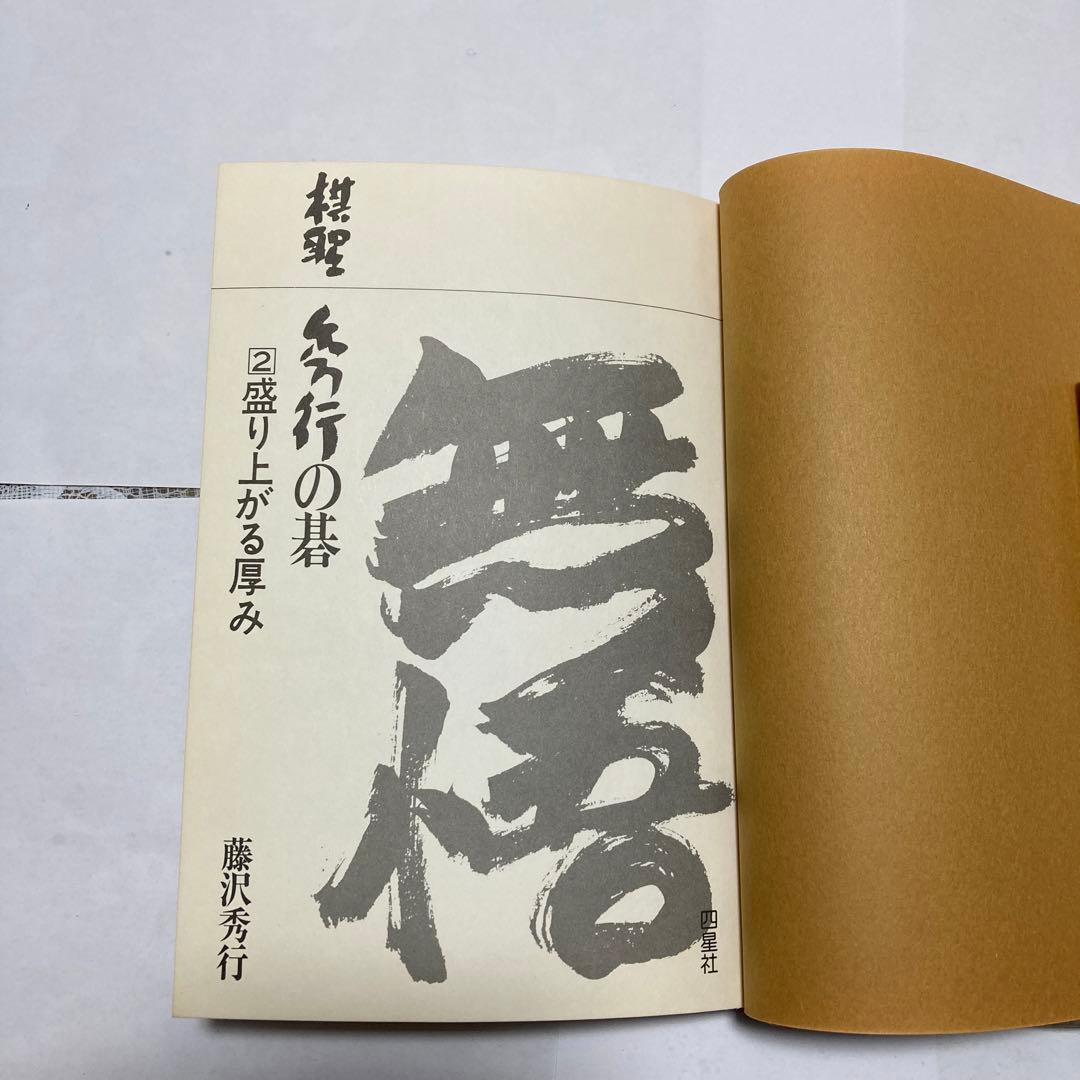 棋聖
秀行の碁
2盛り上がる厚み
無悟
藤沢秀行
四星社